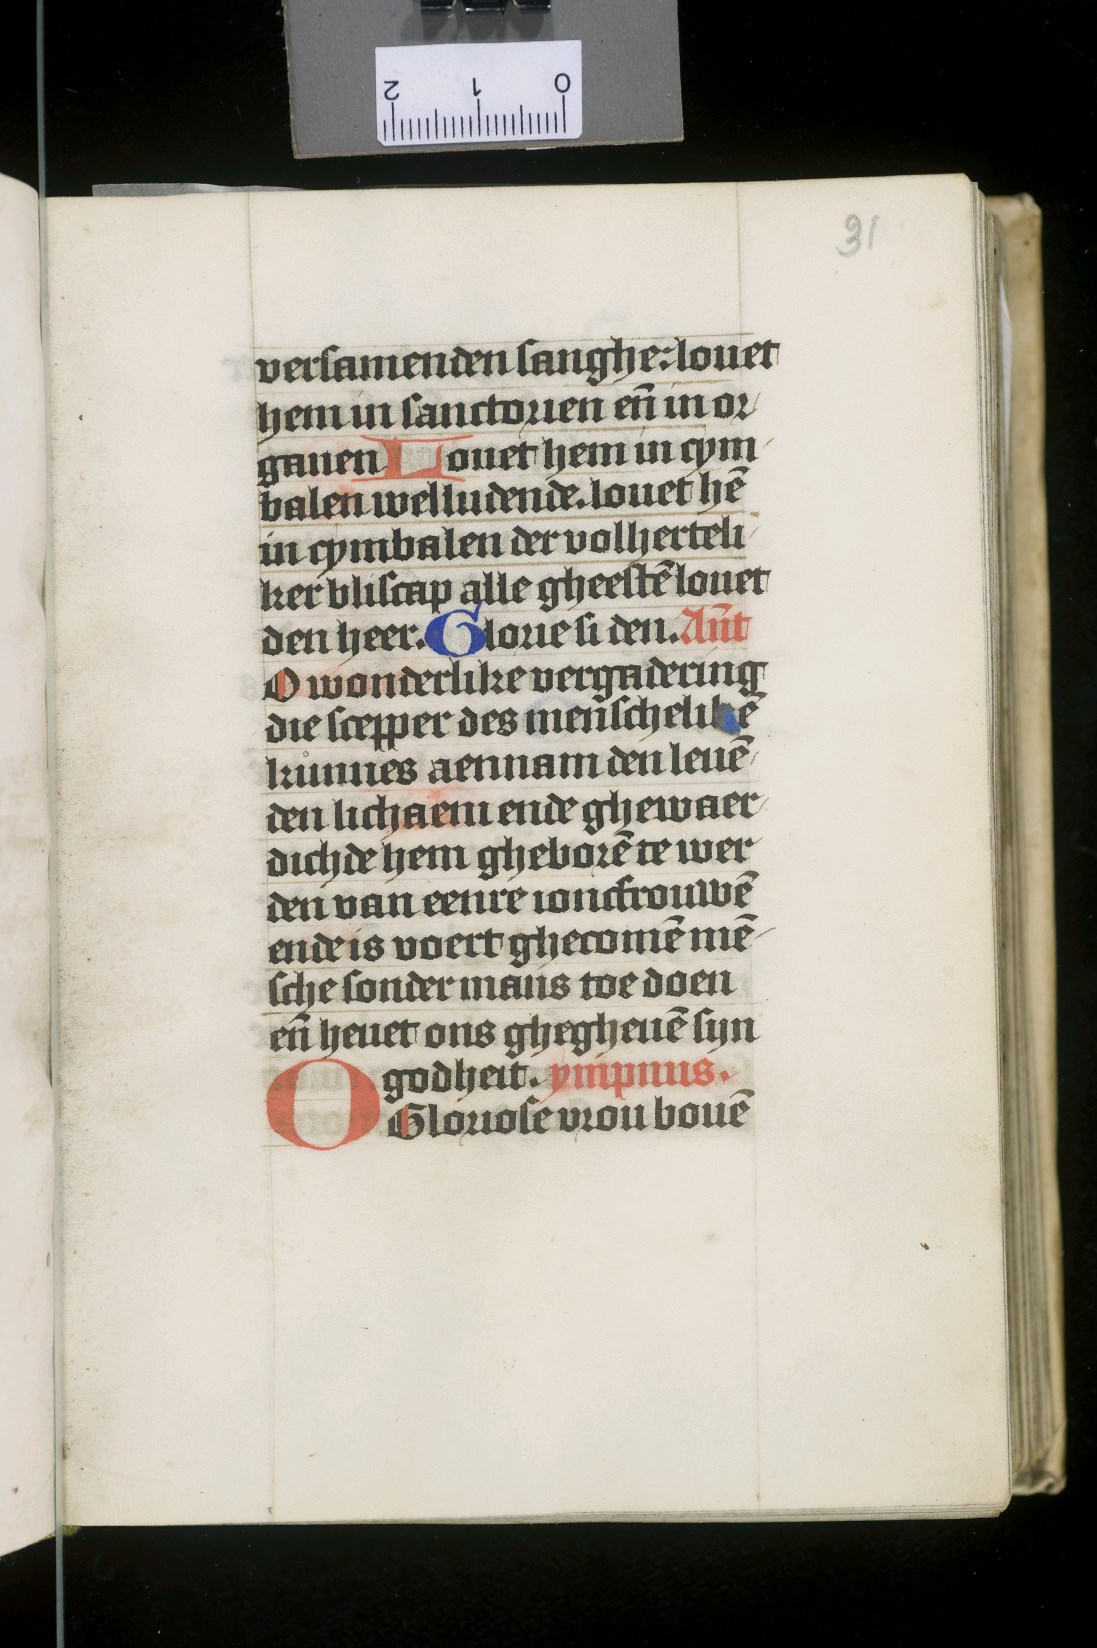 2 1 0
31
versamenden sanghe: louet
hem in sanctorien en̄ in or/
ganen Louet hem in cym/
balen welludende. louet hē
in cymbalen der volherteli/
ker bliscap alle gheestē louet
den heer. Glorie si den. An̄t
O wonderlike vergadering
die scepper des men̄schelikē
kunnes aennam den leuē/
den lichaem ende ghewaer/
dichde hem gheborē te wer/
den van eenre ioncfrouwē
ende is voert ghecomē mē/
sche sonder mans toe doen
en̄ heuet ons ghegheuē sijn
godheit. ympnus.
O Gloriose vrou bouē